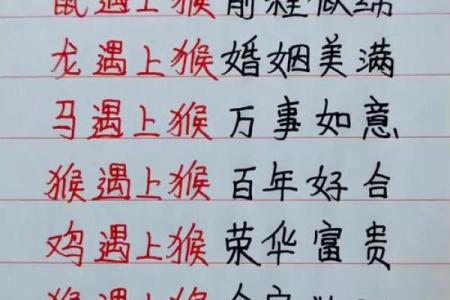 鼠遇上猴前程似锦
龙遇上猴婚姻美满
马遇上猴万事如意
猴遇上猴百年好合
鸡遇上猴荣华富贵
遇上猴